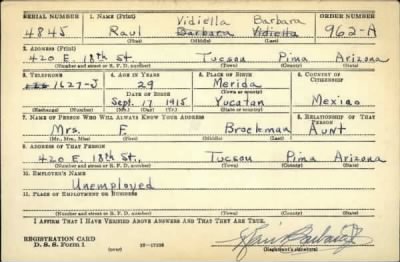 SERIAL NUMBER 1. NAME (Print) ORDER NUMBER
Vidiella Barbara
4845 Raul Barbara Vidiella 962-A
(First) (Middle) (Last)
2. ADDRESS (Print)
420 E. 18th St. Tucson Pima Arizona
(Number and street or R. F. D. number) (Town) (County) (State)
3. TELEPHONE 4. AGE IN YEARS 5. PLACE OF BIRTH 6. COUNTRY OF CITIZENSHIP
1627-J 29 Merida
DATE OF BIRTH (Town or county)
Sept. 17 1915 Yucatan Mexico
(Exchange) (Number) (Mo.) (Day) (Yr.) (State or country)
7. NAME OF PERSON WHO WILL ALWAYS KNOW YOUR ADDRESS 8. RELATIONSHIP OF THAT PERSON
Mrs. F. Brockman Aunt
(Mr., Mrs., Miss) (First) (Middle) (Last)
9. ADDRESS OF THAT PERSON
420 E. 18th St., Tucson Pima Arizona
(Number and street or R. F. D. number) (Town) (County) (State)
10. EMPLOYER'S NAME
Unemployed
11. PLACE OF EMPLOYMENT OR BUSINESS
(Number and street or R. F. D. number) (Town) (County) (State)
I AFFIRM THAT I HAVE VERIFIED ABOVE ANSWERS AND THAT THEY ARE TRUE.
REGISTRATION CARD
D. S. S. Form 1
(Registrant's signature)